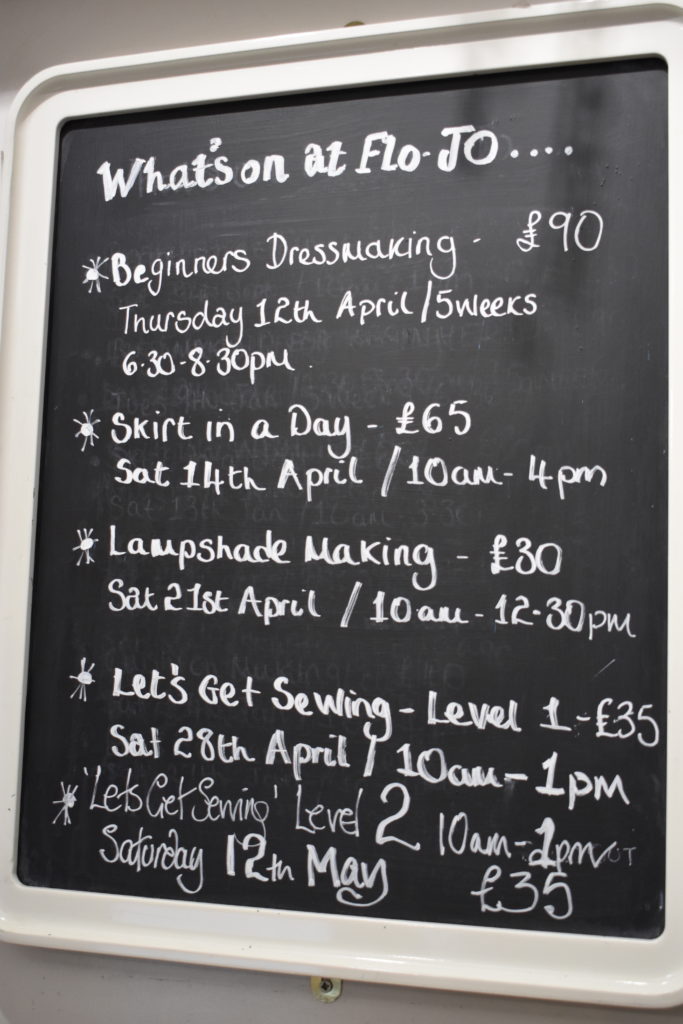 What's on at Flo-Jo....
Beginners Dressmaking - £90
Thursday 12th April / 5 weeks
6.30-8.30pm.
Skirt in a Day - £65
Sat 14th April / 10am - 4pm
Lampshade Making - £30
Sat 21st April / 10am - 12.30pm
Let's Get Sewing - Level 1 - £35
Sat 28th April / 10am - 1pm
'Lets Get Sewing' Level 2 10am-1pm
Saturday 12th May £35